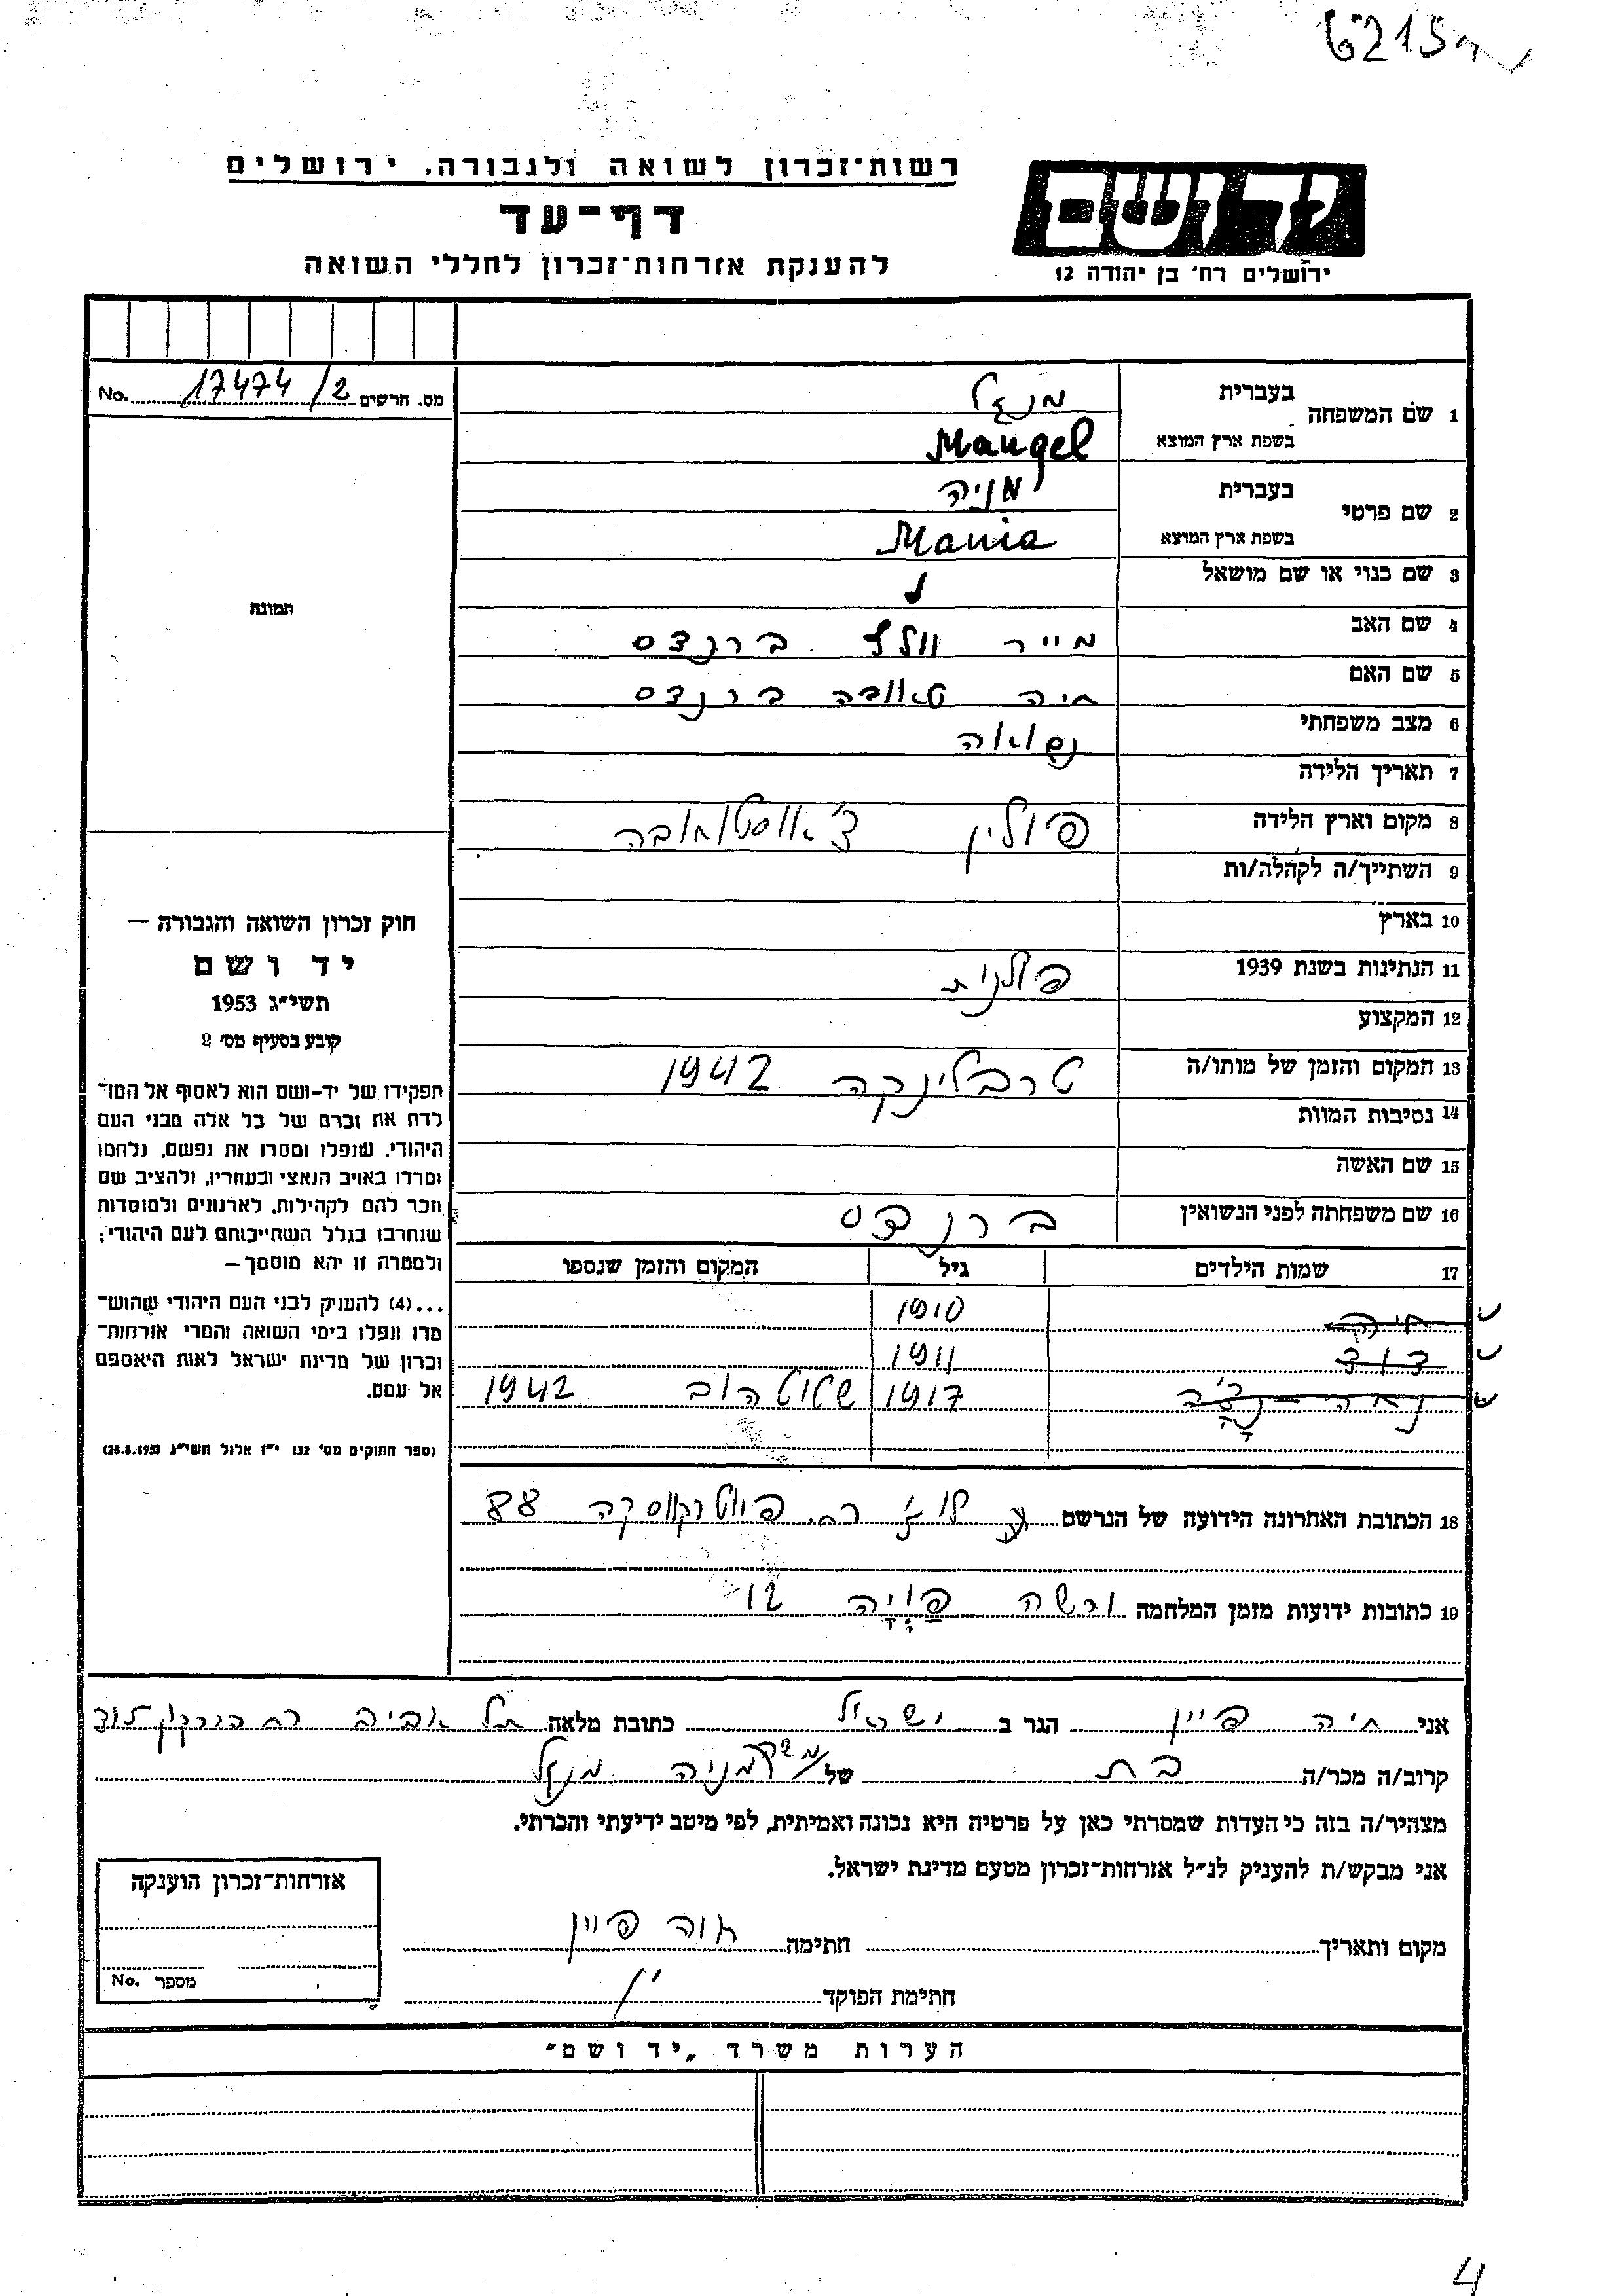 6215
רשות־זכרון לשואה ולגבורה, ירושלים
דף־עד
להענקת אזרחות־זכרון לחללי השואה
יד ושם
ירושלים רח׳ בן יהודה 12
מס. הרשים 17474/2 No.
1 שם המשפחה בעברית מנגל
בשפת ארץ המוצא Mangel
2 שם פרטי בעברית מניה
בשפת ארץ המוצא Mania
3 שם כנוי או שם מושאל
4 שם האב מייר וולף ברנדס
5 שם האם חיה טאובה ברנדס
6 מצב משפחתי נשואה
7 תאריך הלידה
8 מקום וארץ הלידה פולין
9 השתייך/ה לקהלה/ות
10 בארץ
11 הנתינות בשנת 1939 פולנית
12 המקצוע
13 המקום והזמן של מותו/ה טרבלינקה 1942
14 נסיבות המוות
15 שם האשה
16 שם משפחתה לפני הנשואין ברנדס
17 שמות הילדים גיל המקום והזמן שנספו
חיה 1910
דוד 1911
1917 שטוטהוב 1942
18 הכתובת האחרונה הידועה של הנרשם לודז׳ רח. פיוטרקווסקה 88
19 כתובות ידועות מזמן המלחמה ורשה 12
תמונה
חוק זכרון השואה והגבורה —
יד ושם
תשי״ג 1953
קובע בסעיף מס׳ 2
תפקידו של יד-ושם הוא לאסוף אל המו־
לדת את זכרם של כל אלה מבני העם
היהודי, שנפלו ומסרו את נפשם, נלחמו
ומרדו באויב הנאצי ובעוזריו, ולהציב שם
וזכר להם לקהילות, לארגונים ולמוסדות
שנחרבו בגלל השתייכותם לעם היהודי;
ולמטרה זו יהא מוסמך —
...(4) להעניק לבני העם היהודי שהוש־
מדו ונפלו בימי השואה והמרי אזרחות־
זכרון של מדינת ישראל לאות היאספם
אל עמם.
(ספר החוקים מס׳ 132 י״ז אלול תשי״ג 28.8.1953)
אני חיה פיין הגר ב ישראל כתובת מלאה תל אביב רח
קרוב/ה מכר/ה בת של מניה מנגל
מצהיר/ה בזה כי העדות שמסרתי כאן על פרטיה היא נכונה ואמיתית, לפי מיטב ידיעתי והכרתי.
אני מבקש/ת להעניק לנ״ל אזרחות־זכרון מטעם מדינת ישראל.
מקום ותאריך חתימה חיה פיין
חתימת הפוקד
אזרחות־זכרון הוענקה
מספר No.
הערות משרד „יד ושם״
4